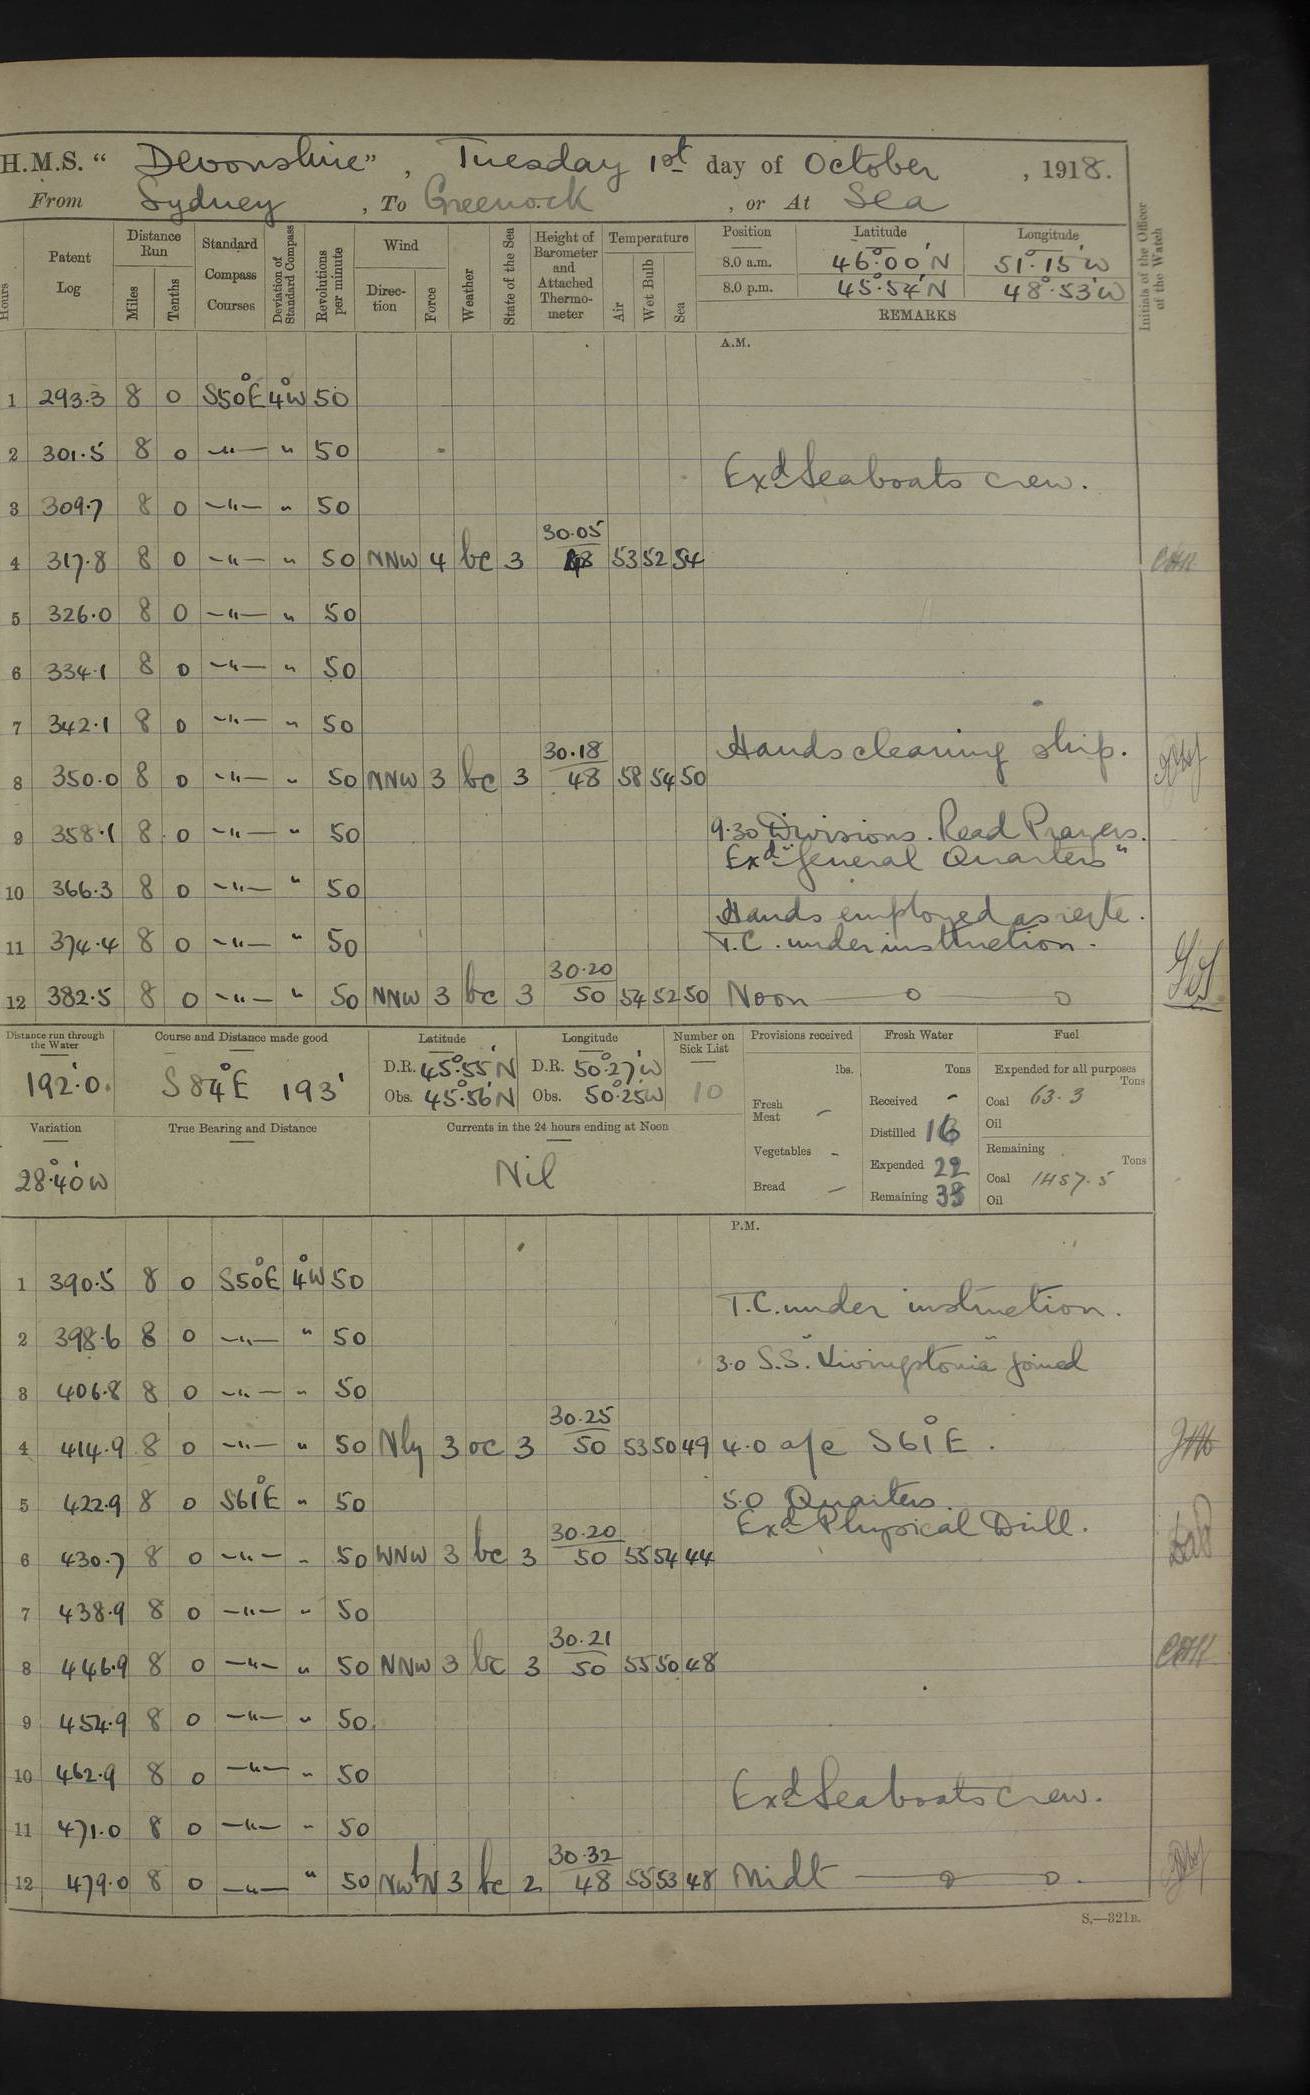 H.M.S. " Devonshire ", Tuesday 1st day of October , 1918.
From Sydney , To Greenock , or At Sea
Hours
Patent Log
Distance Run
Miles
Tenths
Standard Compass Courses
Deviation of Standard Compass
Revolutions per minute
Wind
Direction
Force
Weather
State of the Sea
Height of Barometer and Attached Thermometer
Temperature
Air
Wet Bulb
Sea
Position Latitude Longitude
8.0 a.m. 46°.00'N 51°.15'W
8.0 p.m. 45°.54'N 48°.53'W
REMARKS
Initials of the Officer of the Watch
A.M.
1 293.3 8 0 S50°E 4°W 50
2 301.5 8 0 —"— " 50
Exd Seaboats crew.
3 309.7 8 0 —"— " 50
4 317.8 8 0 —"— " 50 NNW 4 bc 3 30.05 48 53 52 54
5 326.0 8 0 —"— " 50
6 334.1 8 0 —"— " 50
7 342.1 8 0 —"— " 50
Hands cleaning ship.
8 350.0 8 0 —"— " 50 NNW 3 bc 3 30.18 48 58 54 50
9 358.1 8 0 —"— " 50 9.30 Divisions. Read Prayers.
Exd "General Quarters"
10 366.3 8 0 —"— " 50
Hands employed as reqte.
11 374.4 8 0 —"— " 50 T.C. under instruction.
12 382.5 8 0 —"— " 50 NNW 3 bc 3 30.20 50 54 52 50 Noon — o — o
Distance run through the Water
192'.0.
Course and Distance made good
S 84°E 193'
Latitude
D.R. 45°.55'N
Obs. 45°.56'N
Longitude
D.R. 50°.27'W
Obs. 50°.25'W
Number on Sick List
10
Provisions received
lbs.
Fresh Meat —
Vegetables -
Bread —
Fresh Water
Tons
Received -
Distilled 16
Expended 22
Remaining
Fuel
Expended for all purposes
Tons
Coal 63.3
Oil
Remaining
Tons
Coal 1457.5
Oil
Variation
28°.40'W
True Bearing and Distance
Currents in the 24 hours ending at Noon
Nil
P.M.
1 390.5 8 0 S50°E 4°W 50
T.C. under instruction.
2 398.6 8 0 —"— " 50
3.0 S.S. "Livingstonia" joined
3 406.8 8 0 —"— " 50
4 414.9 8 0 —"— " 50 Nly 3 oc 3 30.25 50 53 50 49 4.0 a/c S61°E.
5 422.9 8 0 S61°E " 50 5.0 Quarters.
Exd Physical Drill.
6 430.7 8 0 —"— " 50 WNW 3 bc 3 30.20 50 55 54 44
7 438.9 8 0 —"— " 50
8 446.9 8 0 —"— " 50 NNW 3 bc 3 30.21 50 55 50 48
9 454.9 8 0 —"— " 50
10 462.9 8 0 —"— " 50
Exd Seaboats crew.
11 471.0 8 0 —"— " 50
12 479.0 8 0 —"— " 50 NWbN 3 bc 2 30.32 48 55 53 48 Midt — o — o.
S.—321B.